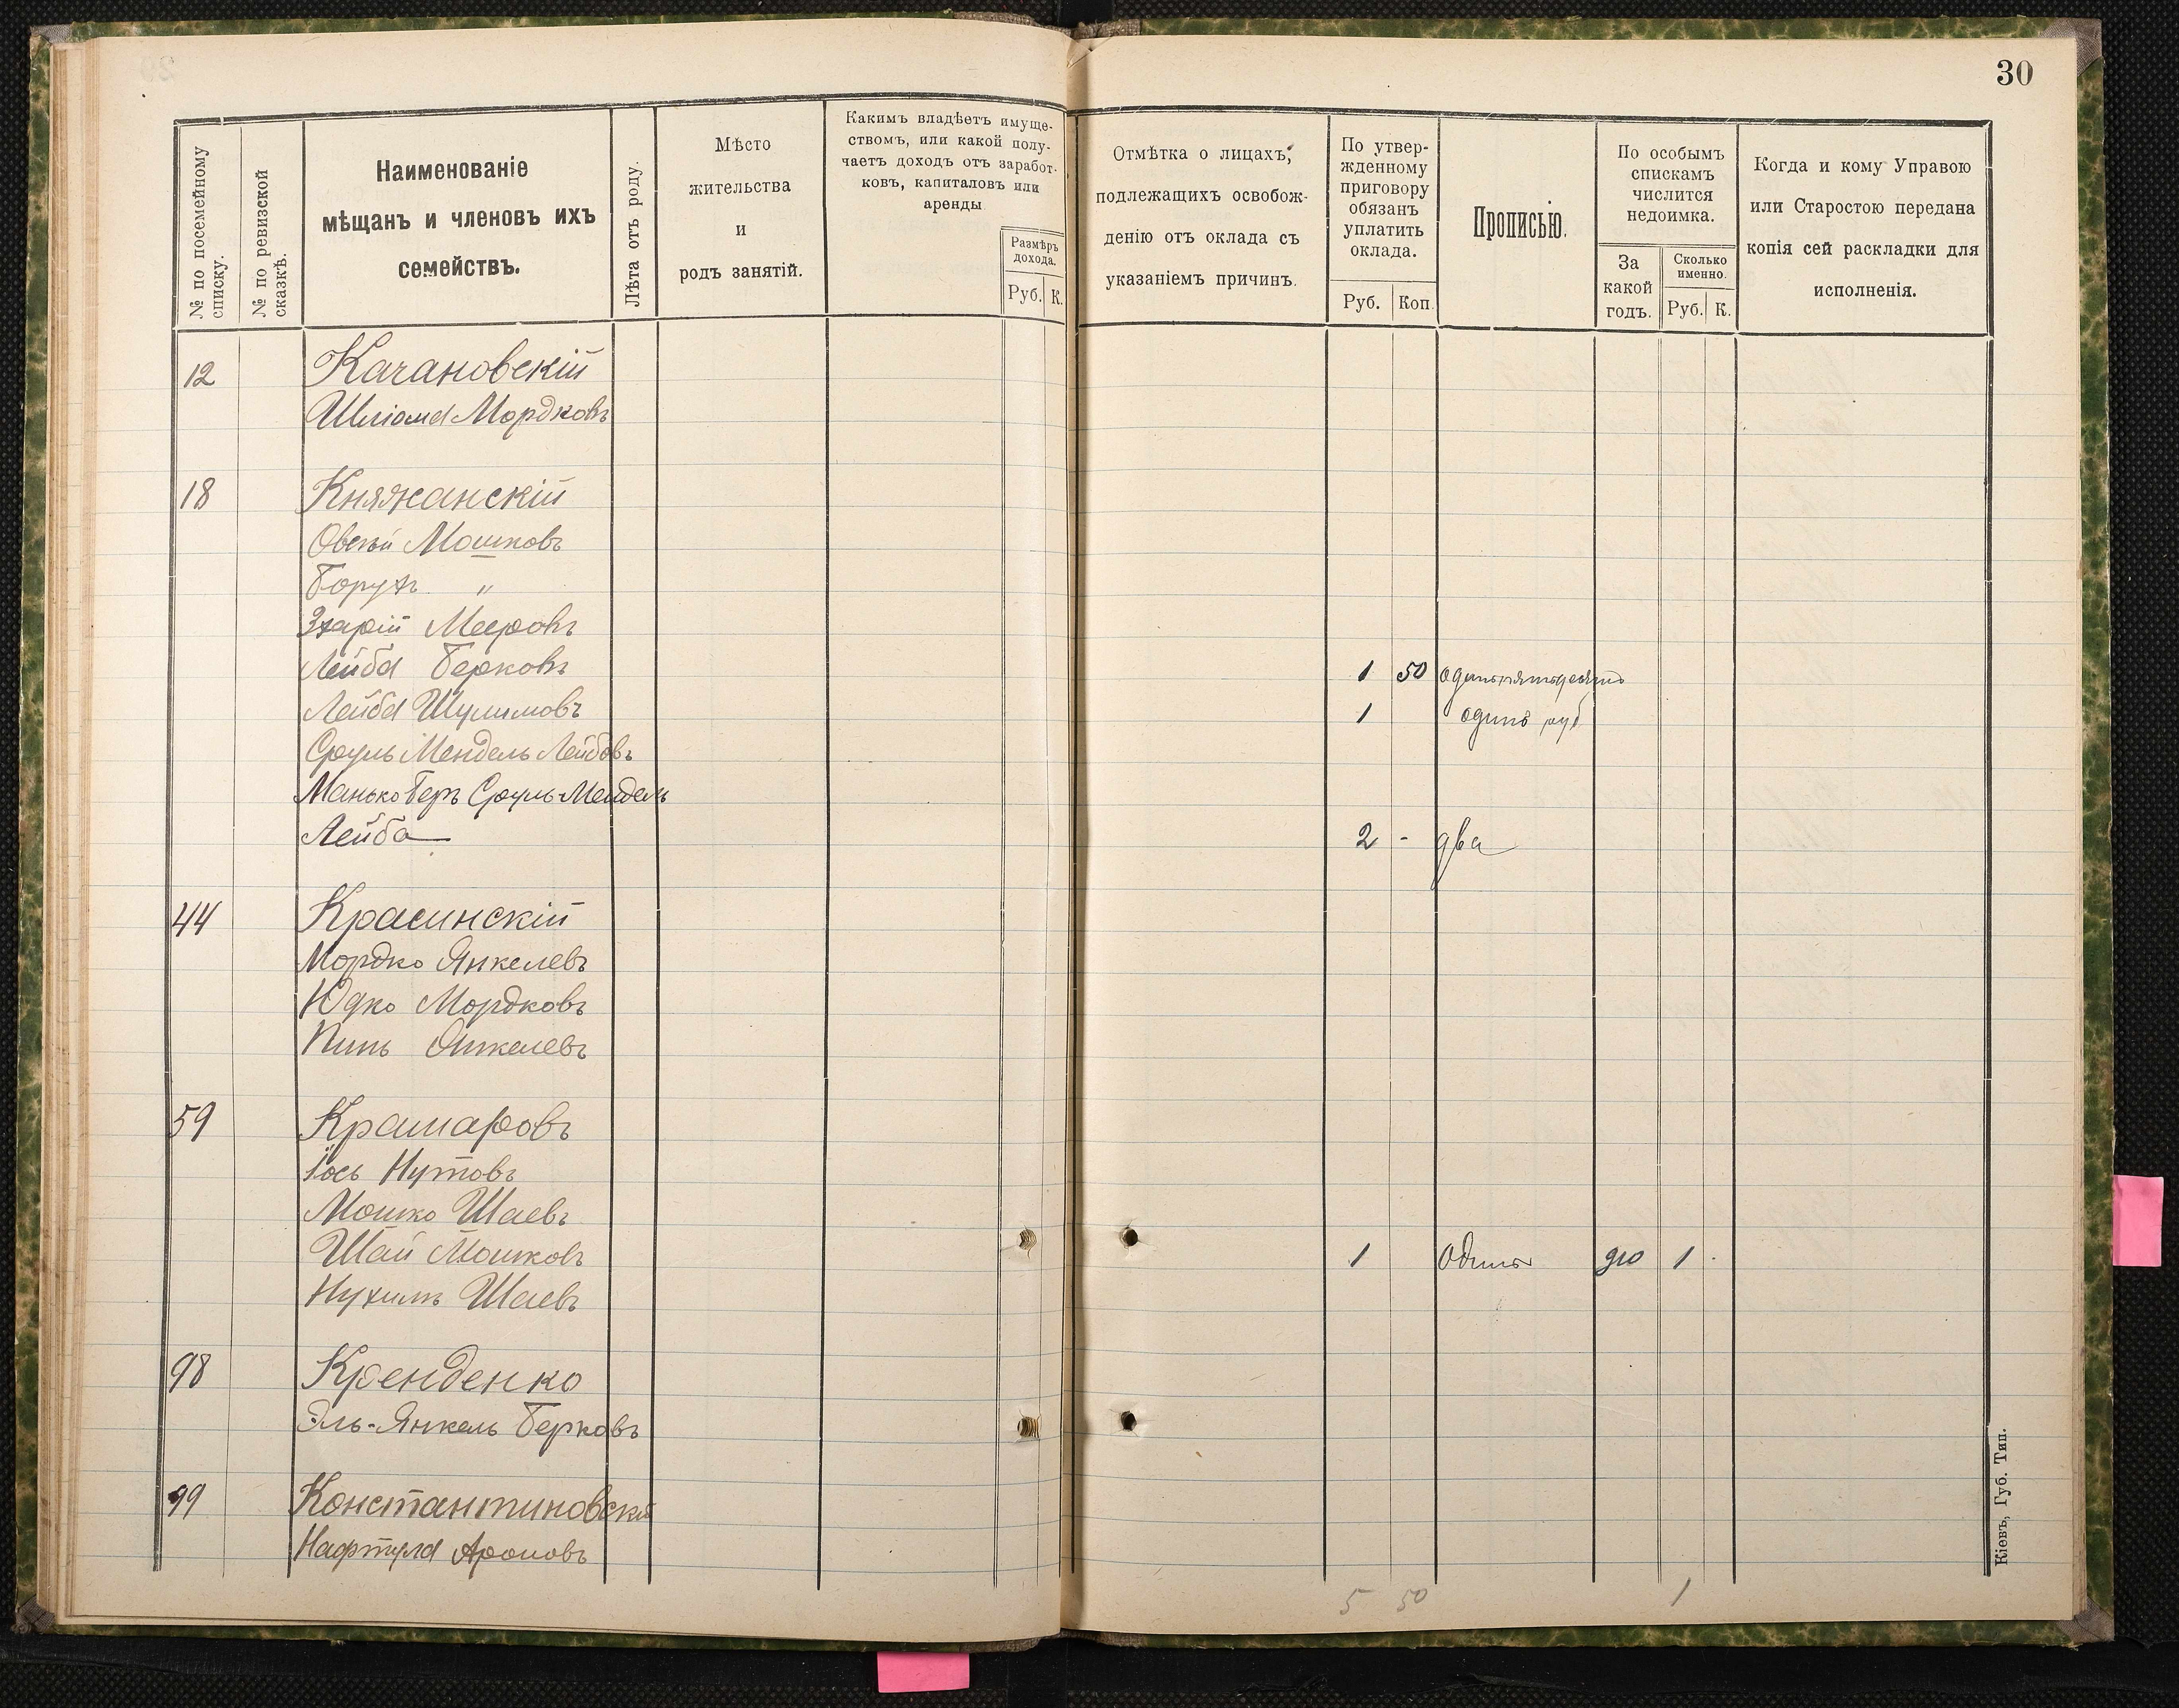 30
№ по посемейному списку.
№ по ревизской сказкѣ.
Наименованіе
мѣщанъ и членовъ ихъ
семействъ.
Лѣта отъ роду.
Мѣсто
жительства
и
родъ занятій.
Какимъ владѣетъ имуще-
ствомъ, или какой полу-
чаетъ доходъ отъ заработ-
ковъ, капиталовъ или
аренды
Размѣръ
дохода.
Руб. К.
Отмѣтка о лицахъ,
подлежащихъ освобож-
денію отъ оклада съ
указаніемъ причинъ.
По утвер-
жденному
приговору
обязанъ
уплатить
оклада.
Руб. Коп.
Прописью.
По особымъ
спискамъ
числится
недоимка.
За
какой
годъ.
Сколько
именно.
Руб. К.
Когда и кому Управою
или Старостою передана
копія сей раскладки для
исполненія.
12 Качановскій
Шліома Мордковъ
18 Княжанскій
Овсей Мошковъ
Борухъ "
Мееровъ
Лейба Берковъ 1 50 одинъ пятьдесятъ
Лейба Шулимовъ 1 одинъ руб
Сруль Мендель Лейбовъ
Манько Беръ Сруль-Мендель
Лейба 2 - два
44 Красинскій
Мордко Янкелевъ
Юдко Мордковъ
Пинь Янкелевъ
59 Крамаровъ
Іось Нутовъ
Мошко Шаевъ
Шай Мошковъ 1 Одинъ 910 1
Нухимъ Шаевъ
98 Кренденко
Эль-Янкель Берковъ
99 Константиновскій
Нафтула Ароновъ
5 50 1
Кіевъ, Губ. Тип.